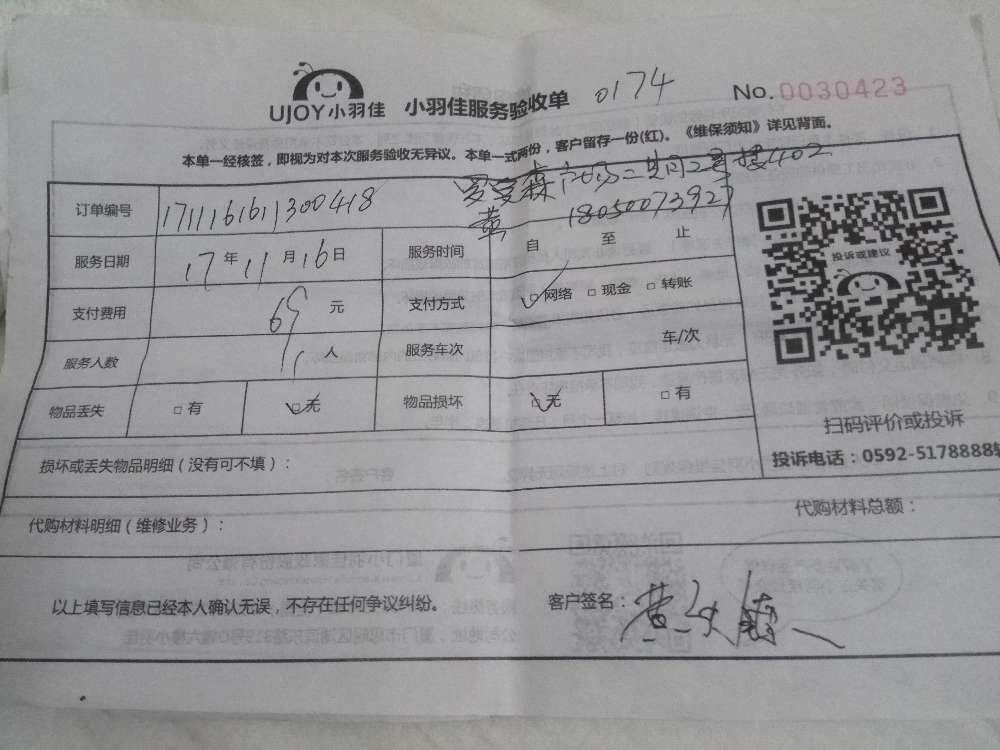 UJOY小羽佳 小羽佳服务验收单 0174 No.0030423
本单一经核签，即视为对本次服务验收无异议。本单一式两份，客户留存一份(红)。《维保须知》详见背面。
2号楼402
订单编号 1711161611300418 黄 18050073927
服务日期 17年11月16日 服务时间 自 至 止
投诉或建议
支付费用 69元 支付方式 ☑网络 □现金 □转账
服务人数 1人 服务车次 车/次
物品丢失 □有 ☑无 物品损坏 ☑无 □有
扫码评价或投诉
损坏或丢失物品明细（没有可不填）：
投诉电话：0592-5178888转
代购材料明细（维修业务）：
代购材料总额：
以上填写信息已经本人确认无误，不存在任何争议纠纷。 客户签名：黄